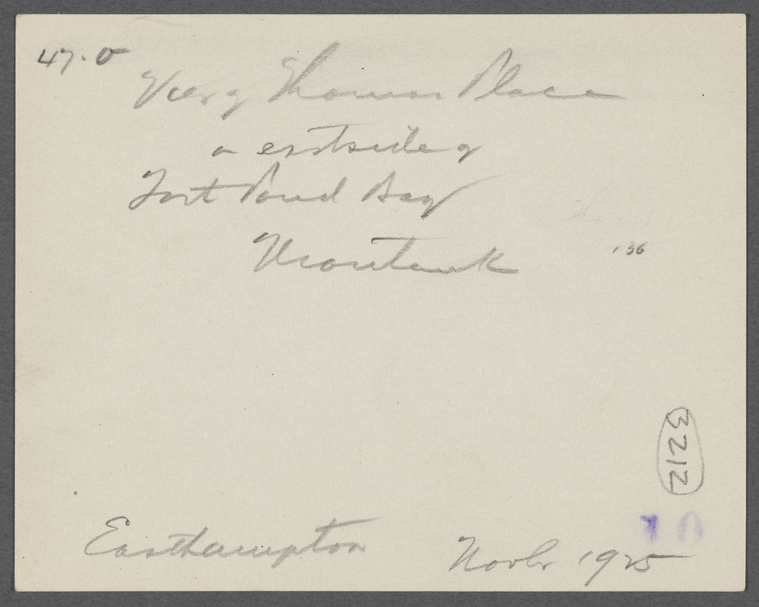 47-0
View of Thomas Place
on eastside of
Fort Pond Bay
Montauk
'36
3212
10
Easthampton
Novbr 1925